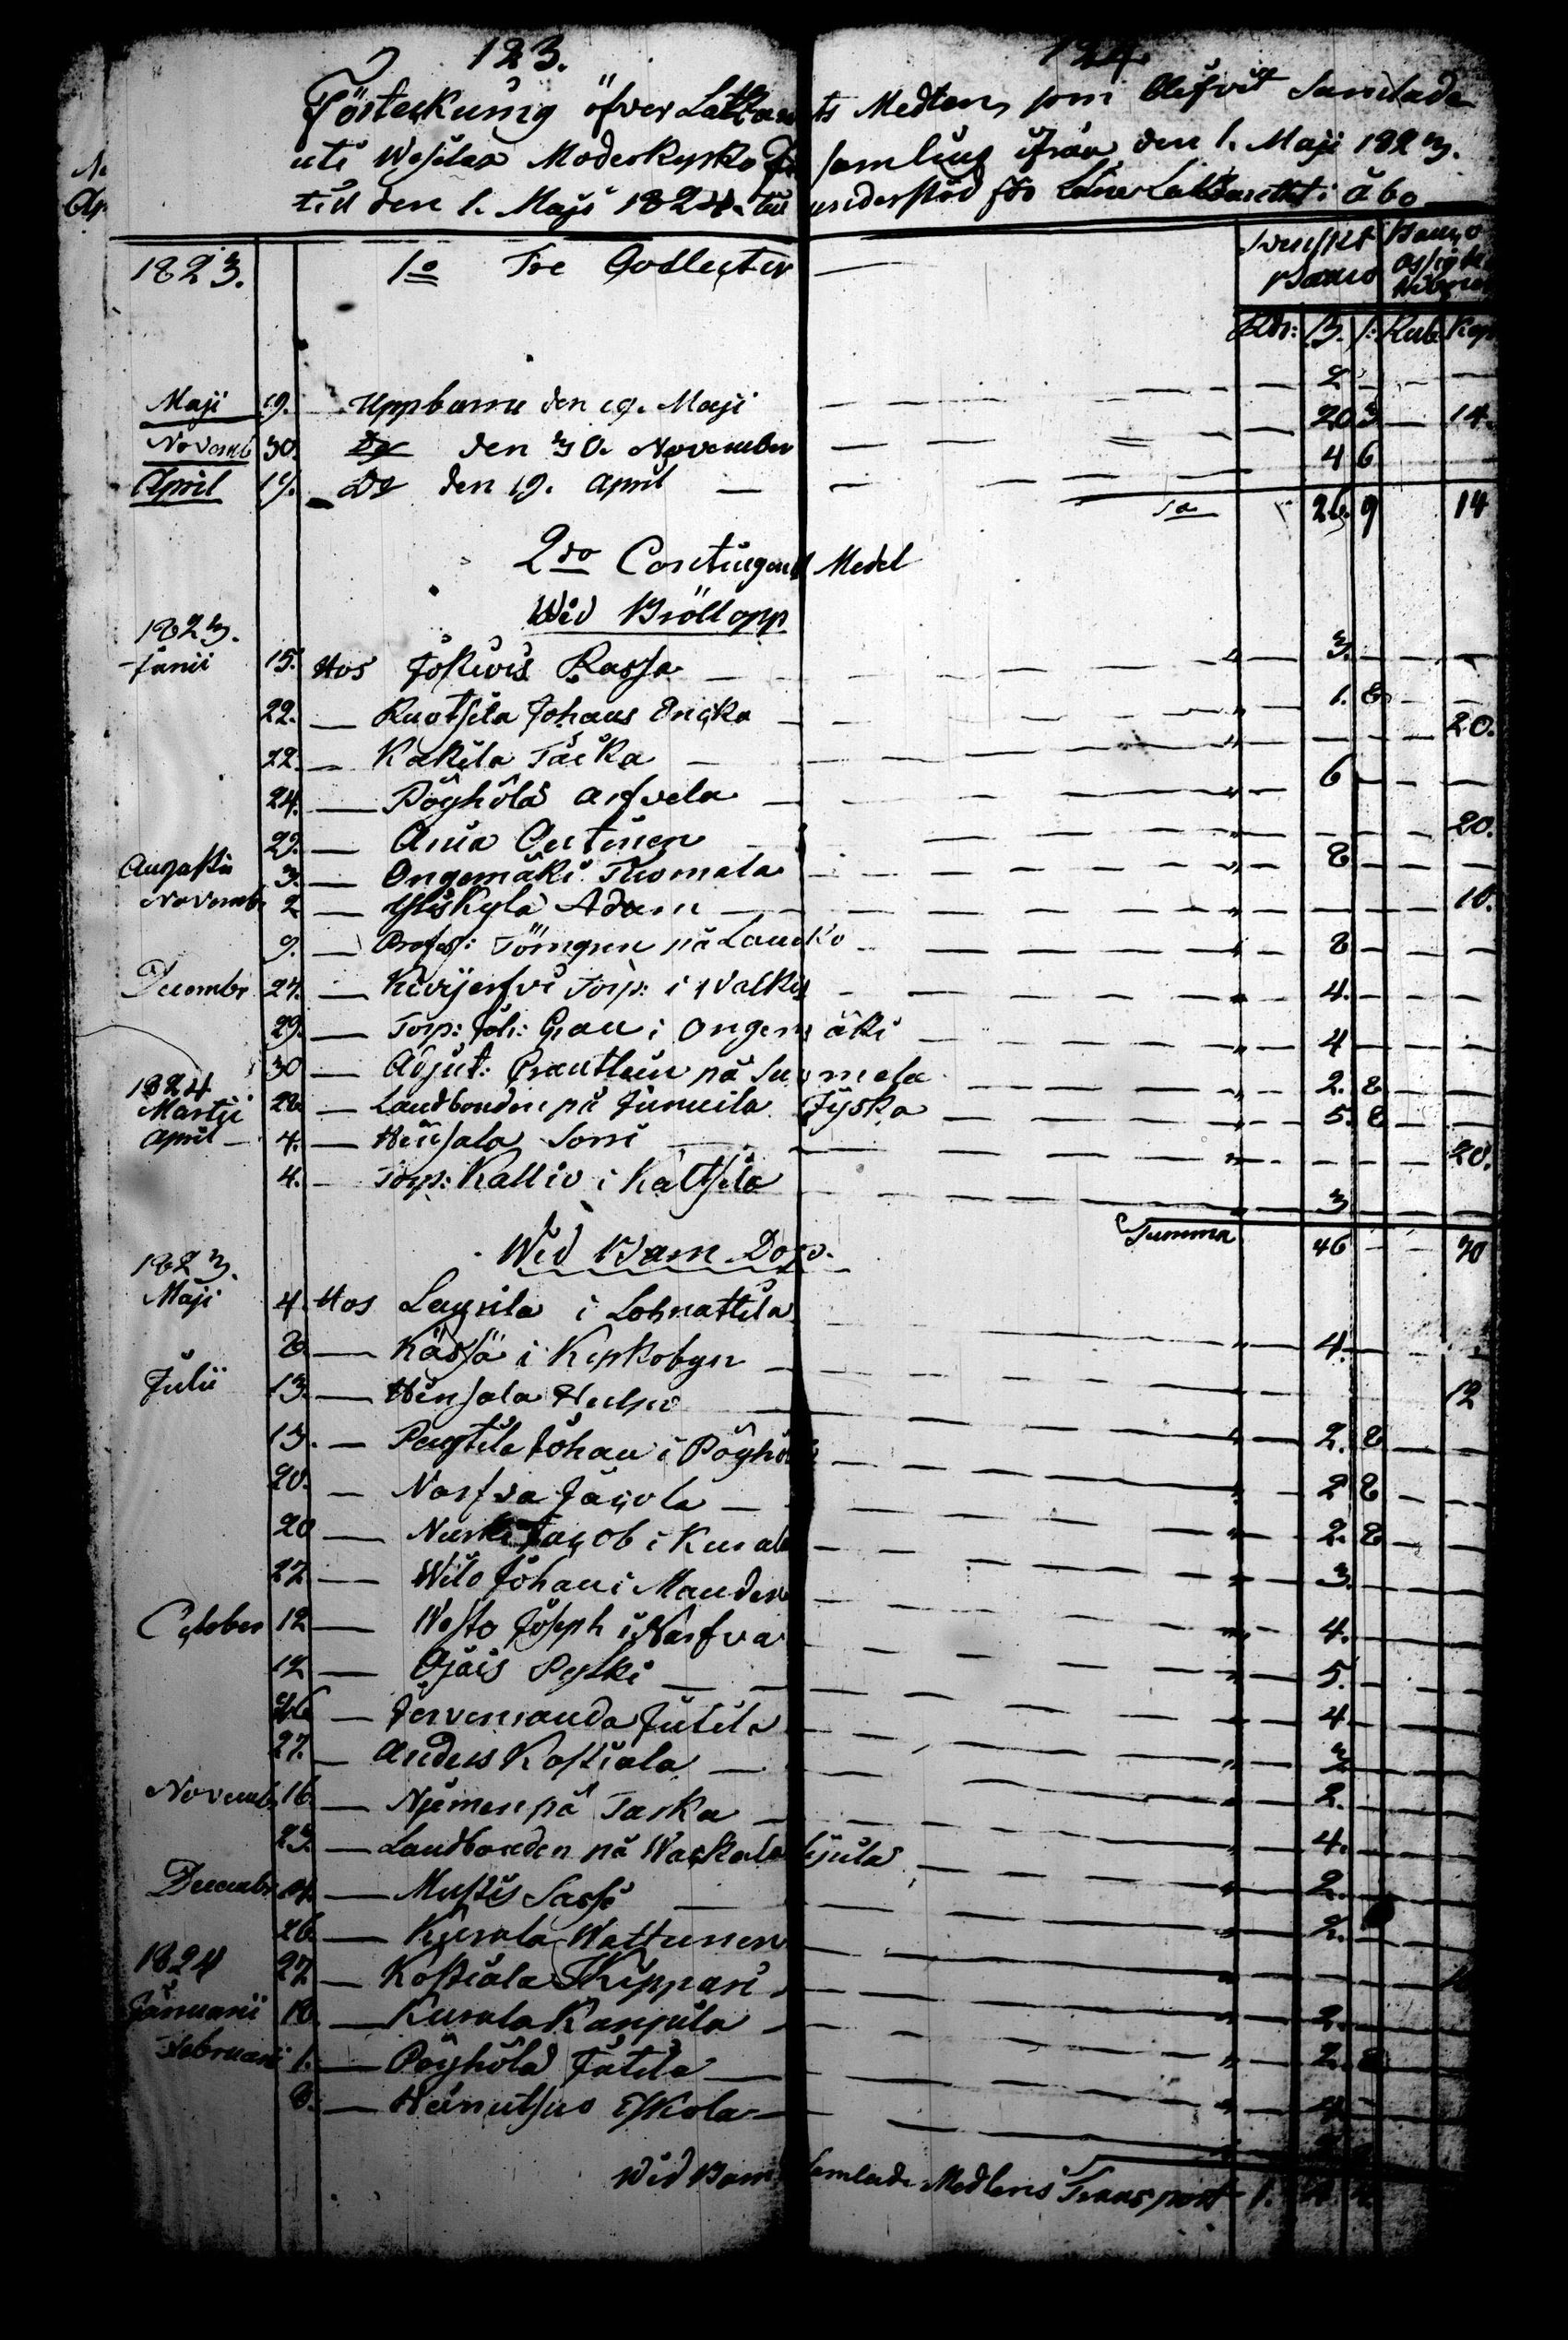 123. 124.
Förteckning öfver Lazaretts Medlen, som blifvit Samlade
uti Wesilax Moderkyrko Församling ifrån den 1. Maji 1823.
till den 1. Maji 1824 till understöd för Läns Lazarettet i Åbo
1823. 1o Tre Collecter Svenskt Banco Banco Assign.
Rdr: B. r: Rub. Kop.
Maji 19. Uppburne den 19. Maji 2
Novemb 30. Do den 30. November 20 3 14.
April 19. Do den 19. April 4 6
Sa 26. 9 14
2do Contingent Medel
Wid Bröllopp
1823.
Junii 15. Hos Jokivis Rassa 3.
22. Ruotsila Johans Encka 1. 8
22. Kakila Täcka 20.
24. Pöyhölä Arfvela 6
29. Anna Outinen 20.
Augusti 3. Ongemäki Tuomala 8
Novemb 2 Yliskylä Adam 10.
9. Profess: Törngren på Lauko 8
Decembr 27. Kivijerfvi Torp: i Walkis 4.
29. Torp: Joh: Gran i Ongenmäki 4
30 Adjut: på Suomela 2. 8
1824
Martii 28 Landbonden på Junnila Jyska 5. 8
April 4. Heinsala Sorri 20.
4. Torp: Kallio i Kaltsila 3
Summa 46 70
Wid Barn Dop.
1823.
Maji 4. Hos Laurila i Lohnattila 4.
8. Kässä i Kyrkobyn 12
Julii 13. Hinsala 2. 8
13. Penttilä Johan i Pöyhölä 2 8
20. Narfva Jacola 2. 8
20 Nurki Jacob i Kurala 3.
27 Wilo Johan i Mander 4.
October 12 Westo Joseph i Narfva 5.
12 Ojais Pylki 4.
26 Jervenranda Jutila 3
27. Anders Kostiala 2.
Novemb. 16. Nieminen på Taska 4.
23. Landbonden på Wackala 2.
Decembr Mustis Sassi 2.
26. Kurala Wattunen
1824 27. Kostiala Skippari 2.
Januarii 18. Kurala Kanpila 2. 8
Februari 1. Pöyhölä Jutila 4
8. Heinutsuo Eskola
Wid Barn Samlade Medlens Transport 1.